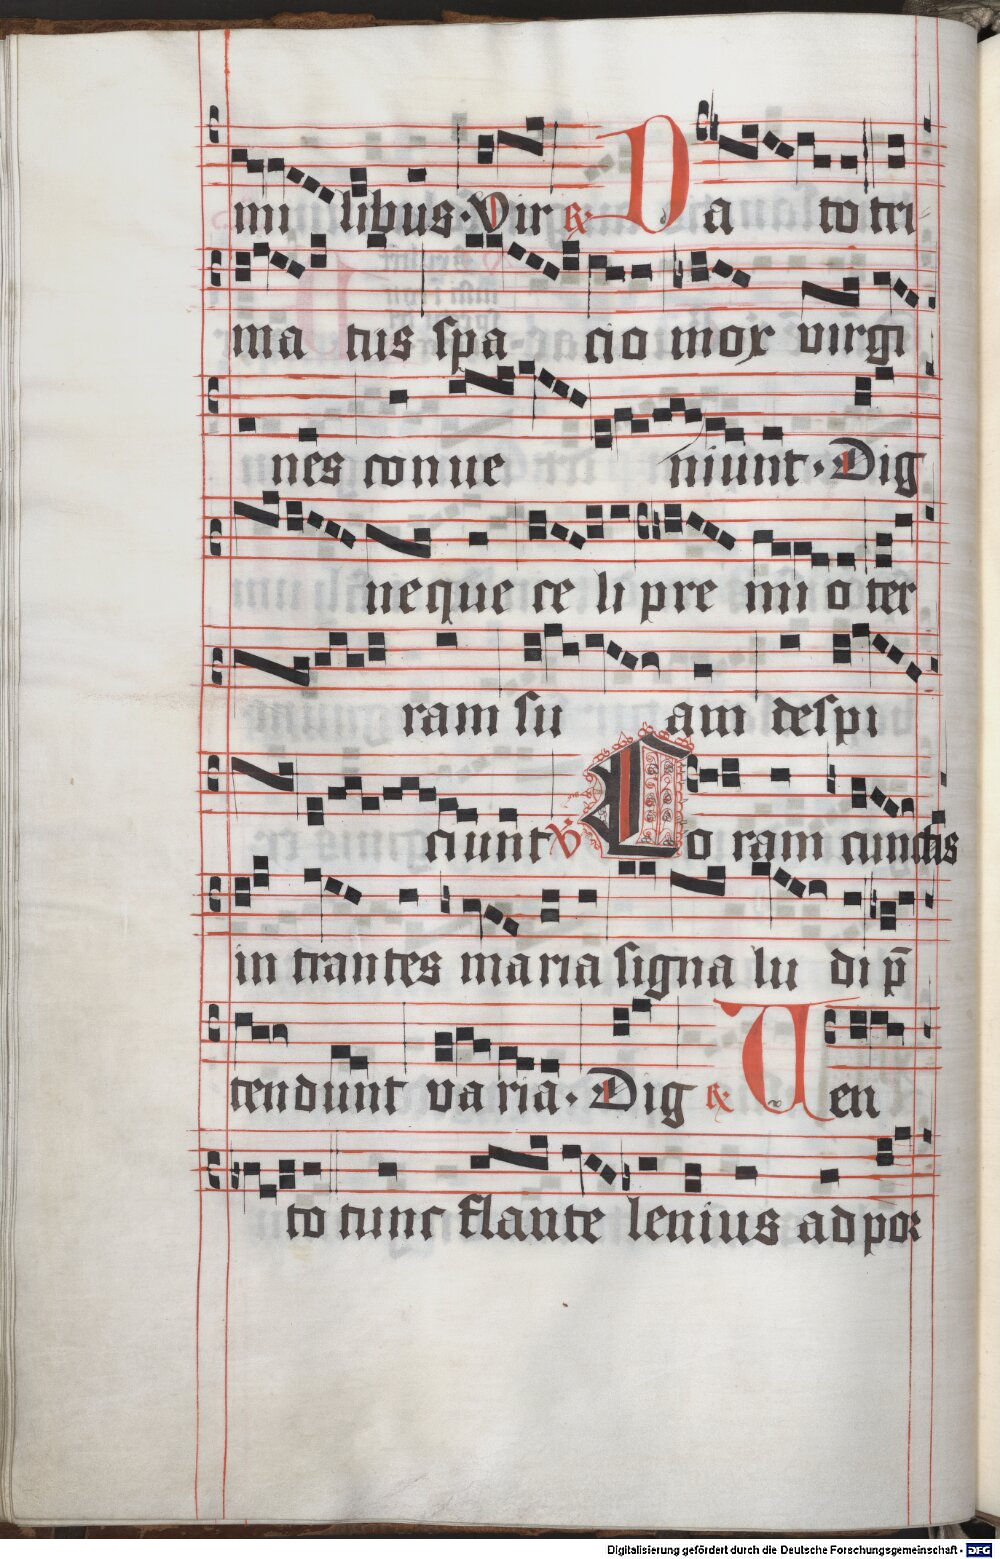 mi libus · Vir ℟ Da to tri
ma tus spa cio mox virgi
nes conue niunt · Dig
neque ce li pre mi o ter
ram su am despi
ciunt ℣ Co ram cunctis
in trantes maria signa lu di p̄
tendunt va ria · Dig ℟ Uen
to tunc flante lenius ad por
Digitalisierung gefördert durch die Deutsche Forschungsgemeinschaft - DFG